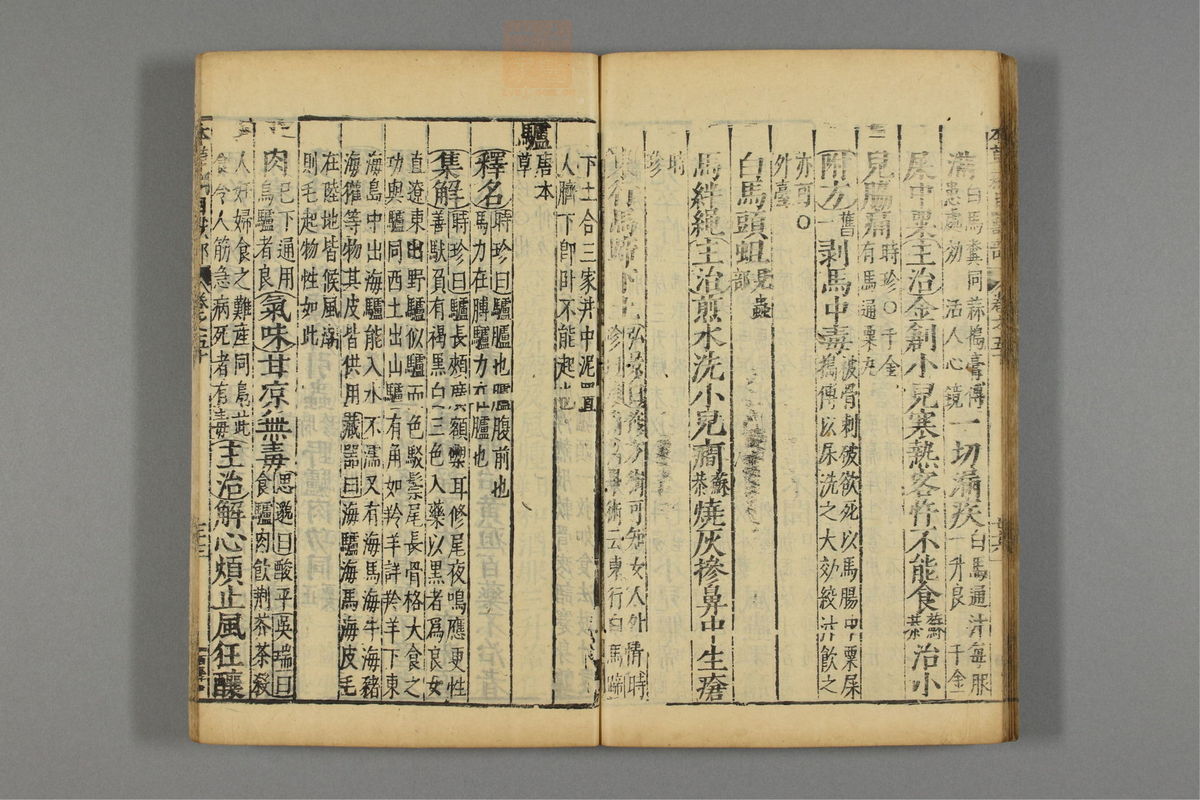 滿白馬糞同蒜搗膏傅
患處効　活人心鏡一切漏疾白馬通汁每服
一升良　千金
屎中粟主治金創小兒寒熱客忤不能食蘇恭治小
兒脇痛時珍〇千金
有馬通粟丸
附方舊一剥馬中毒被骨刺破欲死以馬腸中粟屎
搗傅以尿洗之大効絞汁飲之
亦可〇
外臺
白馬頭蛆見蟲部
馬絆繩主治煎水洗小兒癇蘇恭燒灰摻鼻中生瘡
時珍
東行馬蹄下土弘景曰作方術可知女人外情時
珍曰淮南萬畢術云東行白馬蹄
下土合三家井中泥置
人臍下卽臥不能起也
驢唐本草
釋名時珍曰驢臚也臚腹前也
馬力在膊驢力在臚也
集解時珍曰驢長頰廣額磔耳修尾夜鳴應更性
善馱負有褐黑白三色入藥以黑者爲良女
直遼東出野驢似驢而色駁鬃尾長骨格大食之
功與驢同西土出山驢有角如羚羊詳羚羊下東
海島中出海驢能入水不濡又有海馬海牛海豬
海獺等物其皮皆供用藏器曰海驢海馬海皮毛
在陸地皆候風潮
則毛起物性如此
肉巳下通用
烏驢者良氣味甘凉無毒思邈曰酸平吳瑞曰
食驢肉飮荆芥茶殺
人姙婦食之難產同鳧茈
食令人筋急病死者有毒主治解心煩止風狂釀